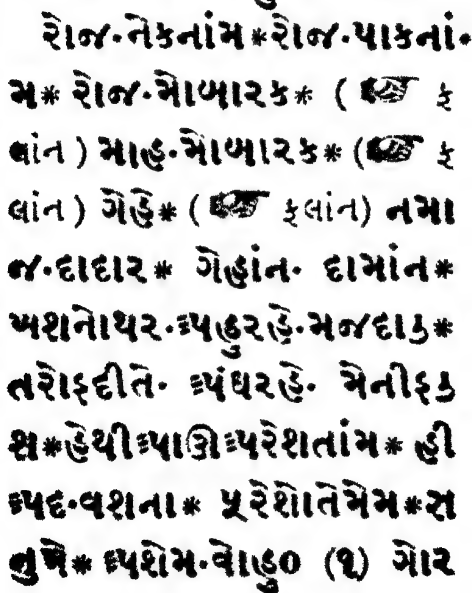 રોજ·નેકનાંમ * રોજ·પાકનાં·
મ * રોજ·મોબારક * ( ☞ ફ
લાંન ) માહ·મોબારક * (☞ ફ
લાંન ) ગેહે * ( ☞ ફલાંન) નમા
જ·દાદાર * ગેહાંન· દામાંન *
ખશનોથર· અહુરહે·મજદાઉ *
તરોઇદીતે· અંઘરહે· મેનીઇઉ
શ * હેથીઆવરેશતાંમ * હી
અદ·વશના * ફેરેશોતેમેમ * સ
તુએ * અશેમ·વોહુ૦ (૧) ગોર